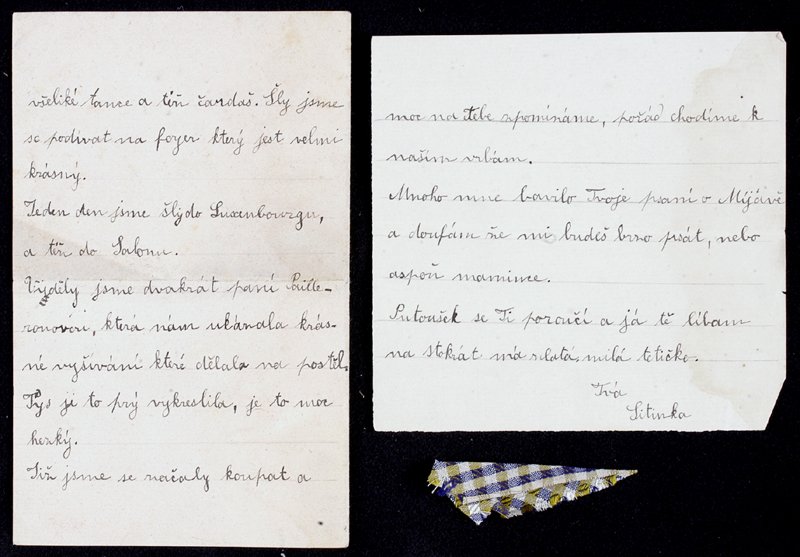 všeliké tance a též čardaš. Šly jsme
se podívat na foyer který jest velmi
krásný.
Jeden den jsme šly do Luxenbourgu,
a též do Salonu.
Vyděly jsme dvakrát paní Paille-
ronovou, která nám ukázala krás-
né vyšívání které dělala na postel.
Tys jí to prý vykreslila, je to moc
hezký.
Již jsme se začaly koupat a
moc na tebe zpomínáme, pořád chodíme k
našim vrbám.
Mnoho mne bavilo Tvoje psaní o Mijávě
a doufám že mi budeš brzo psát, nebo
aspoň mamince.
Putoušek se Ti poroučí a já tě líbam
na stokrát má zlatá, milá tetičko.
Tvá
Sitinka